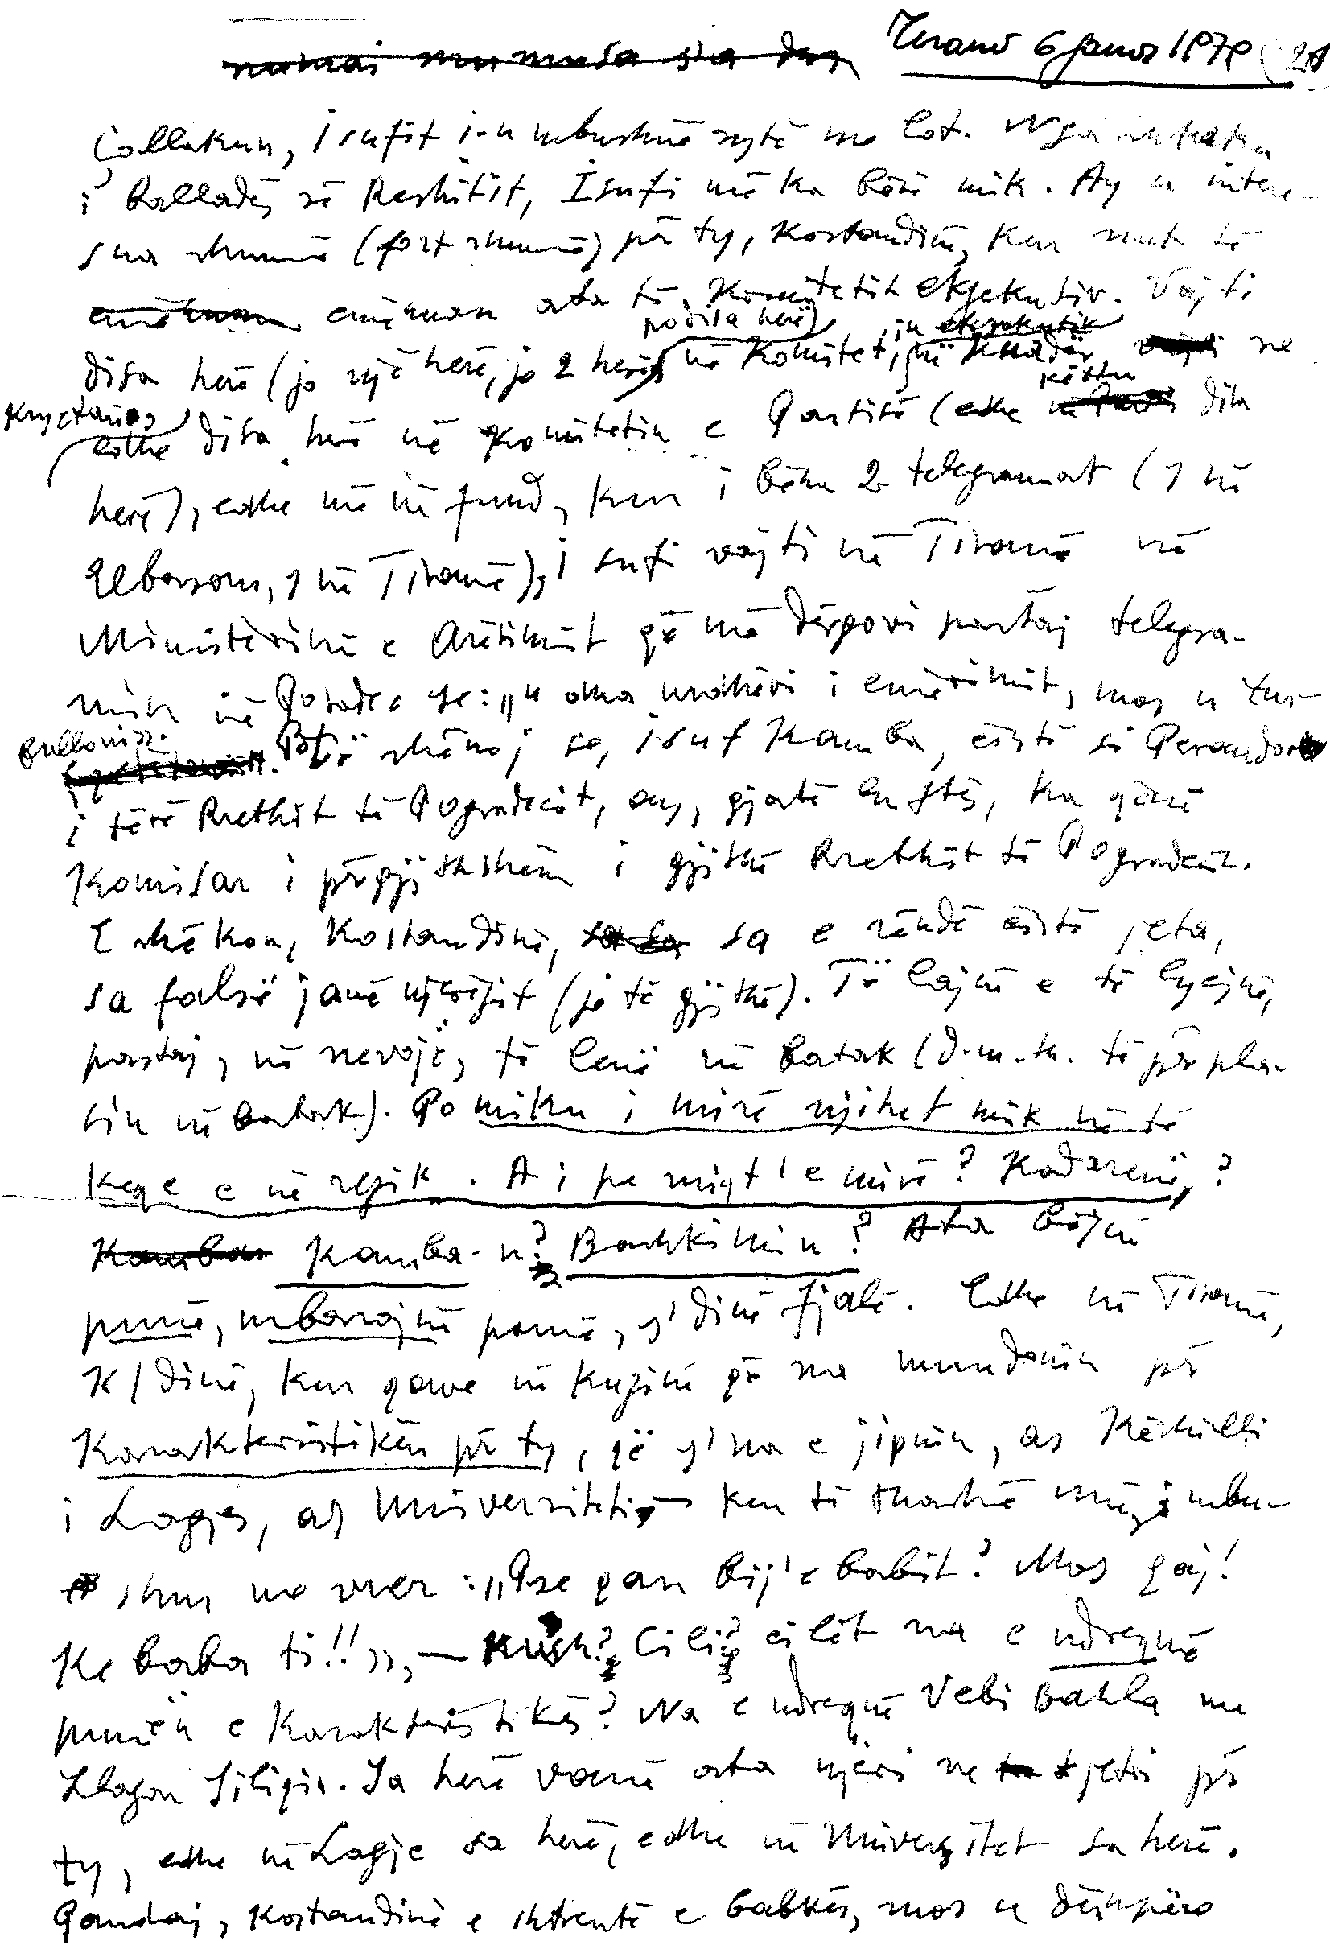 Tiranë 6 Janar 1978 (21
Çollakun, Isufit i-u mbushnë sytë me lot. Nga
i Balladës së Reshitit, Isufi më ka bërë mik. Ay u intere-
sua shumë (fort shumë) për ty, Kostandinë, kur nuk të
emëruan ata të Komitetit ekzekutiv. Vajti
podisa herë)
disa herë (jo një herë, jo 2 herë në Komitet, në
Kryetarin kështu
edhe disa herë në Komitetin e Partisë (edhe disa
herë), edhe më në fund, kur i bëhu 2 telegramat (1 në
Elbasan, 1 në Tiranë), Isufi vajti në Tiranë në
Ministërinë e Arësimit që më dërgovi pastaj telegra-
min në Pogradec se: „u dha urdhëri i emërimit, mos u tur-
bulloni”. Të shënoj se, Isuf Kamba, është si Perandor
i tërë Rrethit të Pogradecit, ay, gjatë luftës, ka qënë
Komisar i përgjithshëm i gjithë Rrethit të Pogradecit.
E shikon, Kostandinë, sa e rëndë është jeta,
sa falsë janë njerëzit (jo të gjithë). Të lajnë e të lyejnë,
pastaj, në nevojë, të lenë në batak (d.m.th. të përpla-
sin në batak). Po miku i mirë njihet mik në të
keqe e në rezik. A i pe miqt' e mirë? Kadarenë?
Kamba-n? Bashkimin? Ata bëjnë
punë, mbarojnë punë, s' dinë fjalë. Edhe në Tiranë,
K/dinë, kur qave në kuzinë që na mundonin për
Karakteristikën për ty, që s' na e jipnin, as Këshilli
i Lagjes, as Universiteti, kur të thashë mbu-
shur me vrer: „Pse qan bij' e babit? Mos qaj!
Ke baba ti!!”, — Kush? Cili? cilët na e ndreqnë
punën e Karakteristikës? Na e ndreqnë Vebi Bahla me
Llazon Siliqin. Sa herë vanë ata njëri me tjetri për
ty, edhe në Lagje sa herë, edhe në Universitet sa herë.
Pandaj, Kostandinë e shtrentë e babkës, mos u dëshpëro